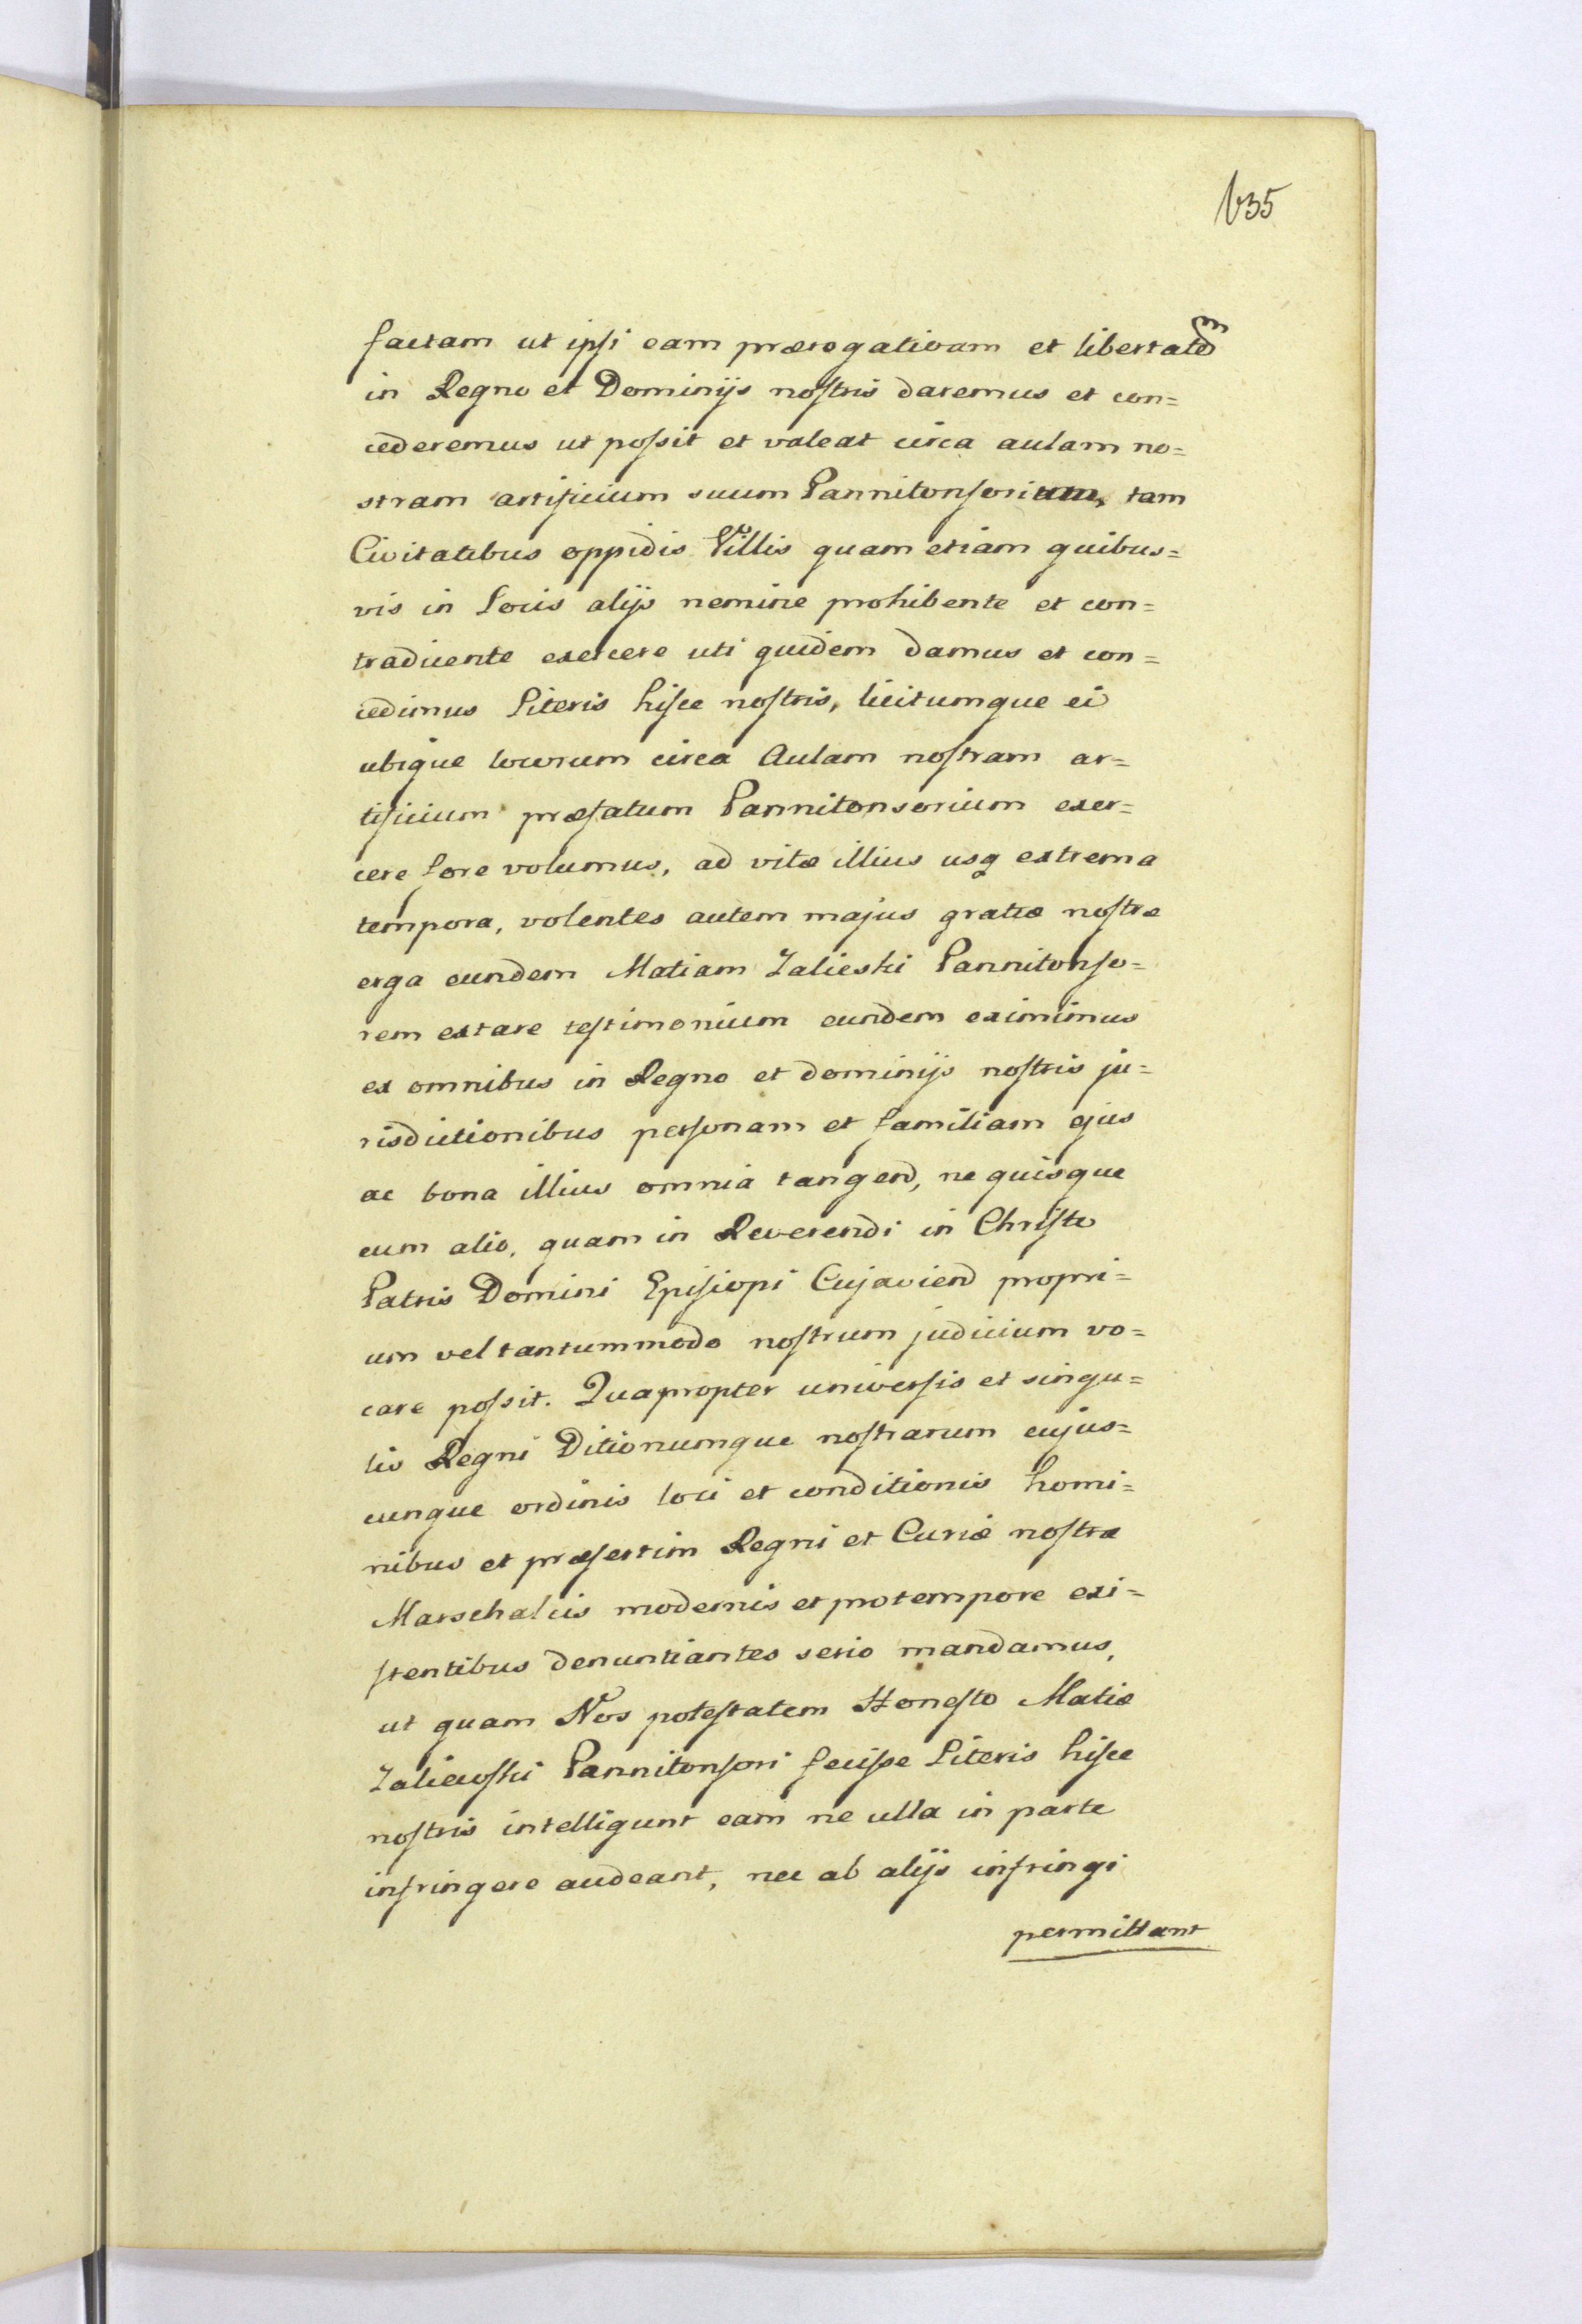 635
factam ut ipsi eam prærogativam et libertatem
in Regno et Dominijs nostris daremus et con=
cederemus ut possit et valeat circa aulam no=
stram artificium suum Pannitonsorium, tam
Civitatibus oppidis et Villis quam etiam quibus=
vis in Locis alijs nemine prohibente et con=
tradicente exercere uti quidem damus et con=
cedimus Literis hisce nostris, licitumque ei
ubique locorum circa Aulam nostram ar=
tificium præfatum Pannitonsorium exer=
cere fore volumus, ad vitæ illius usq extrema
tempora, volentes autem majus gratiæ nostræ
erga eundem Matiam Zalieski Pannitonso=
rem extare testimonium eundem eximimus
ex omnibus in Regno et dominijs nostris ju=
risdictionibus personam et familiam ejus
ac bona illius omnia tangend, ne quisque
eum alio, quam in Reverendi in Christo
Patris Domini Episcopi Cujaviend propri=
um vel tantummodo nostrum judicium vo=
care possit. Quapropter universis et singu=
lis Regni Ditionumque nostrarum cujus=
cunque ordinis loci et conditionis homi=
nibus et præsertim Regni et Curiæ nostræ
Marschalcis modernis et protempore exi=
stentibus denuntiantes serio mandamus,
ut quam Nos potestatem Honesto Matiæ
Zaliewski Pannitonsori fecisse Literis hisce
nostris intelligunt eam ne ulla in parte
infringere audeant, nec ab alijs infringi
permittant